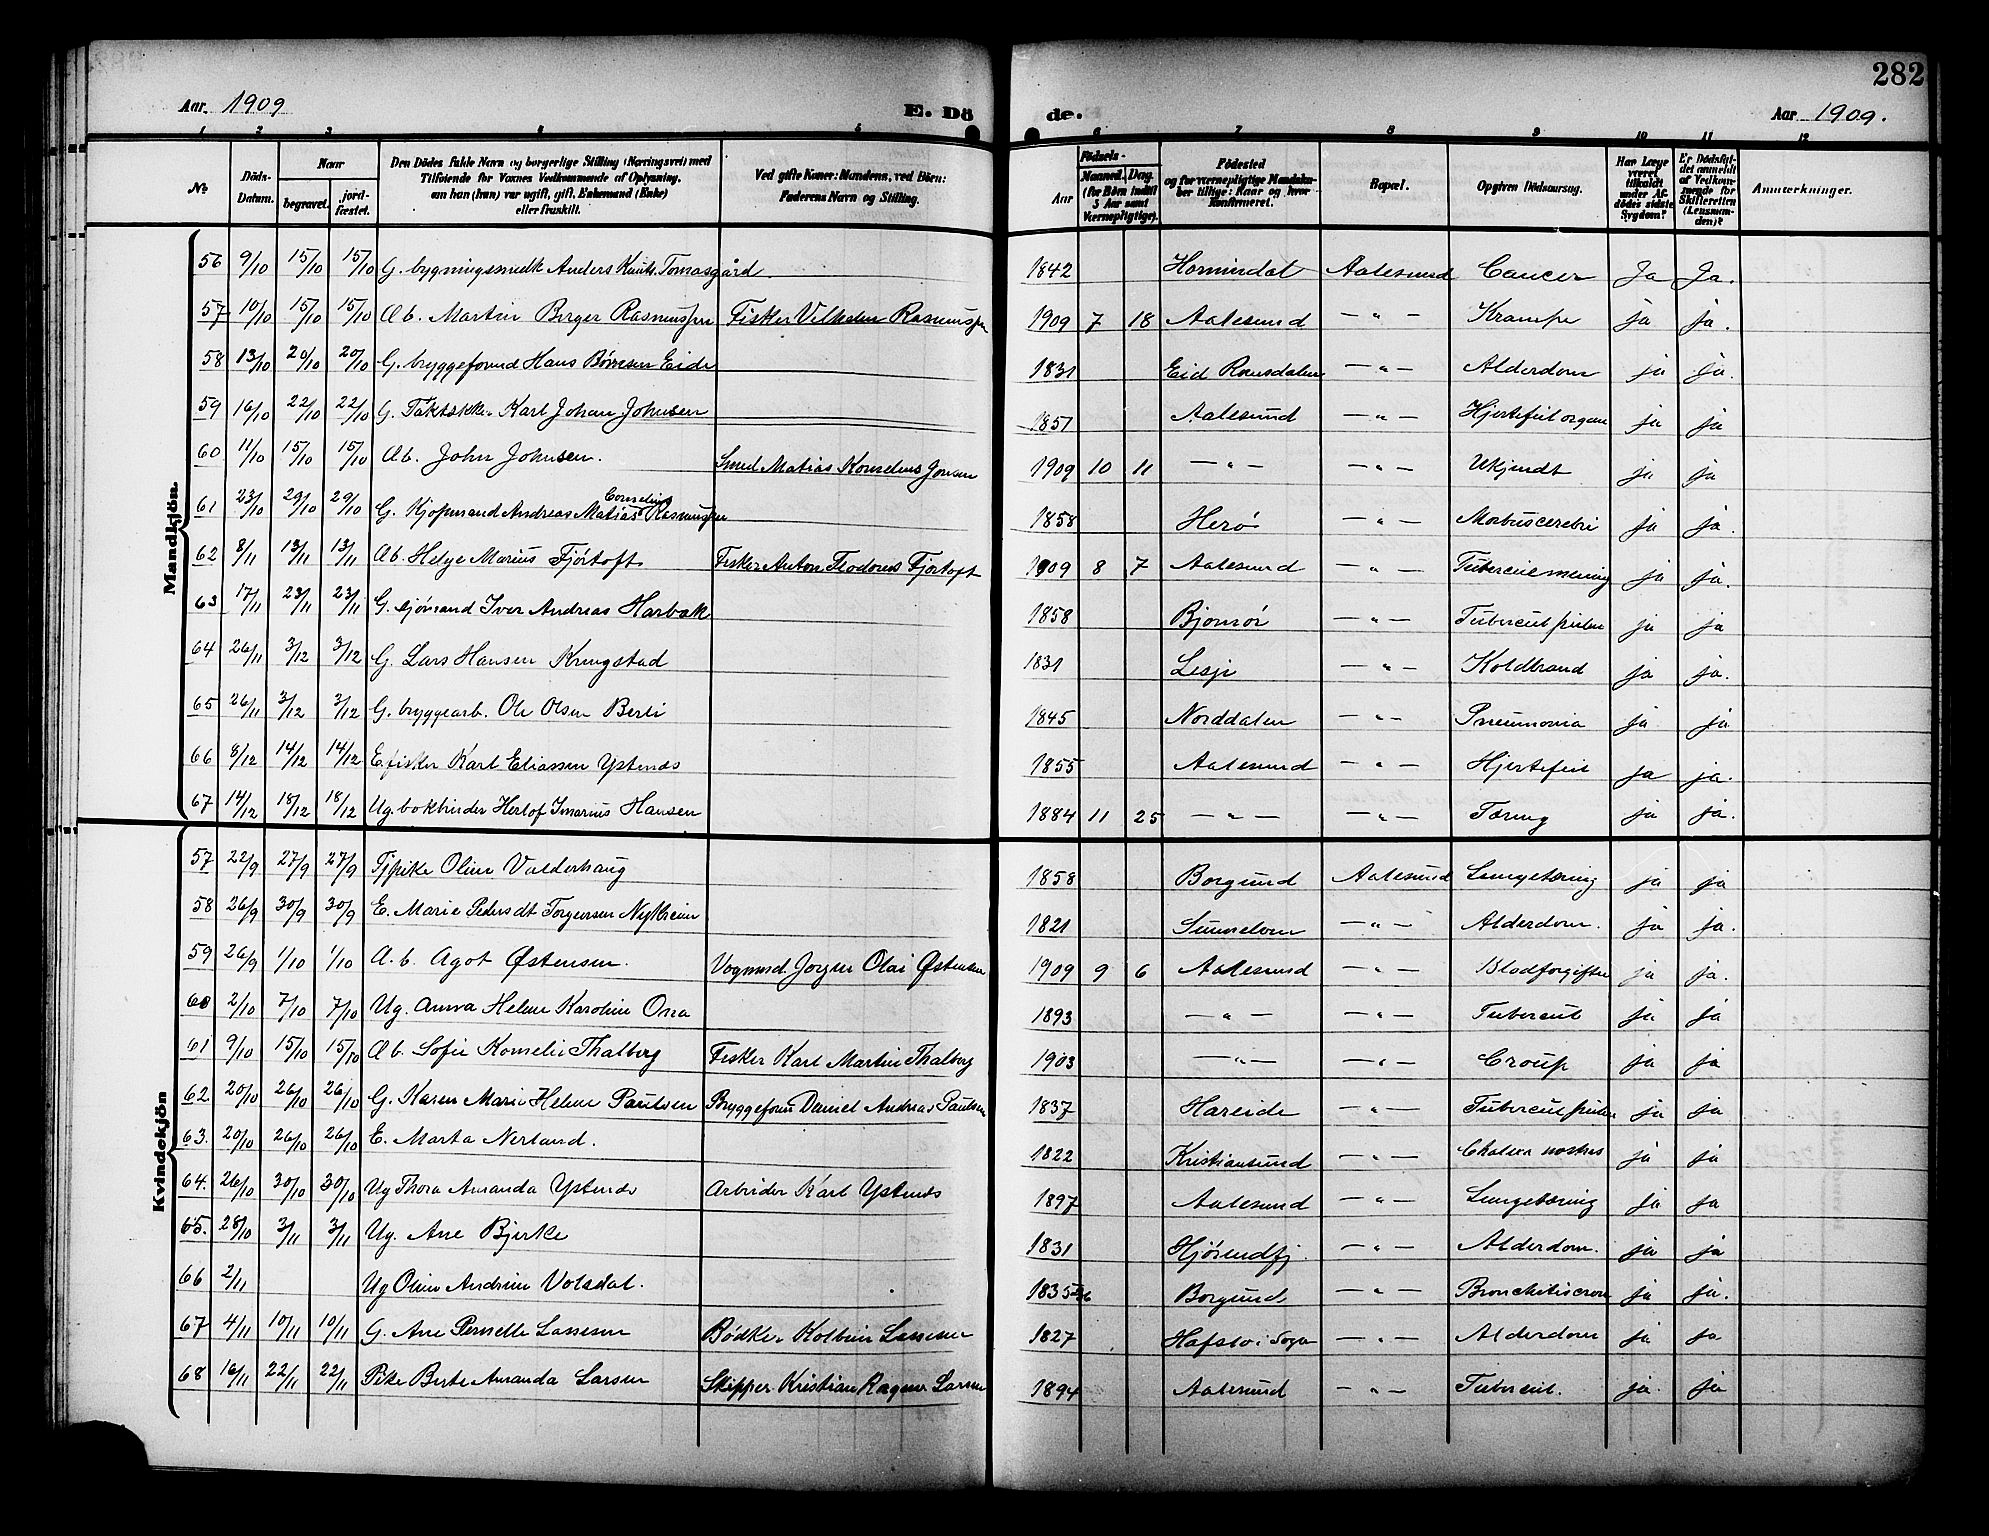 282
Aar 1909 E. Dö de. Aar 1909.
1 2 3 4 5 6 7 8 9 10 11 12
No Döds-Datum. Naar begravet. jordfæstet. Den Dödes fulde Navn og borgerlige Stilling (Næringsvei) med Tilföiende for Voxnes Vedkommende af Oplysning, om han (hun) var ugift, gift, Enkemand (Enke) eller fraskilt. Ved gifte Koner: Mandens, ved Börn: Faderens Navn og Stilling. Födsels- Aar Maaned. Dag. (for Börn indtil 5 Aar samt Værnepligtige). Födested og for værnepligtige Mandskaber tillige: Naar og hvor konfirmeret. Bopæl. Opgiven Dödsaarsag. Har Læge været tilkaldt under Afdödes sidste Sygdom? Er Dödsfaldet anmeldt af Vedkommende for Skifteretten (Lensmanden)? Anmærkninger.
Mandkjön.
56 9/10 15/10 15/10 G. bygningssnedk Anders Knuts. Tomasgård 1842 Hornindal Aalesund Cancer Ja Ja.
57 10/10 15/10 15/10 Æb. Martin Berger Rasmussen Fisker Vilhelm Rasmussen 1909 7 18 Aalesund — " — Krampe ja ja.
58 13/10 20/10 20/10 G. bryggeformd Hans Børresen Eide 1831 Eid Romsdalen — " — Alderdom ja ja.
59 16/10 22/10 22/10 G. Taktækker Karl Johan Johnsen 1851 Aalesund — " — Hjertefeil organ ja ja
60 11/10 15/10 15/10 Æb. John Johnsen. Smed Matias Kornelius Jonsen 1909 10 11 — " — — " — Ukjendt ja ja
61 23/10 29/10 29/10 G. Kjøpmand Andreas Matias Cornelius Rasmussen 1858 Herø — " — Morbus cerebri ja ja.
62 8/11 13/11 13/11 Æb. Helge Marius Fjørtoft Fisker Anton Teodorus Fjørtoft 1909 8 7 Aalesund — " — Tubercul mening ja ja.
63 17/11 23/11 23/11 G. sjömand Iver Andreas Harbak 1858 Bjørnør — " — Tubercul pulm ja ja
64 26/11 3/12 3/12 G. Lars Hansen Kringstad 1831 Lesje — " — Koldbrand ja ja.
65 26/11 3/12 3/12 G. bryggearb. Ole Olsen Berli 1845 Norddalen — " — Pneumonia ja ja
66 8/12 14/12 14/12 E. fisker Karl Eliassen Ystenes 1855 Aalesund — " — Hjertefeil ja ja.
67 14/12 18/12 18/12 Ug. bokbinder Herlof Imarius Hansen 1884 11 25 — " — — " — Tæring ja ja.
Kvindekjön
57 22/9 27/9 27/9 Tjpike Oline Valderhaug 1858 Borgund Aalesund Lungetæring ja ja
58 26/9 30/9 30/9 E. Marie Pedersdt Torgersen Nytheim 1821 Sunnelven — " — Alderdom. ja ja.
59 26/9 1/10 1/10 Æ. b. Agot Østensen. Vognmd Jørgen Olai Østensen 1909 9 6 Aalesund — " — Blodforgiftn ja ja.
60 2/10 7/10 7/10 Ug. Anna Helene Karoline Orra 1893 — " — — " — Tubercul ja ja
61 9/10 15/10 15/10 Æb. Sofie Kornelie Thalberg Fisker Karl Martin Thalberg 1903 — " — — " — Croup ja ja
62 20/10 26/10 26/10 G. Karen Marie Helene Paulsen Bryggeform Daniel Andreas Paulsen 1837 Hareide — " — Tubercul pulm ja ja
63. 20/10 26/10 26/10 E. Marta Nerland. 1822 Kristiansund — " — Cholera nostras ja ja
64. 26/10 30/10 30/10 Ug Thora Amanda Ystenes Arbeider Karl Ystenes 1897 Aalesund — " — Lungetæring ja ja
65. 28/10 3/11 3/11 Ug. Ane Bjerke 1831 Hjørendfj. — " — Alderdom. ja ja
66 2/11 Ug Oline Andrine Volsdal. 1835 Borgund — " — Bronchitis cron ja ja.
67 4/11 10/11 10/11 G. Ane Pernelle Lassesen Bødker Kolbein Lassesen 1827 Hafslo i Sogn — " — Alderdom ja ja
68 16/11 22/11 22/11 Pike Berte Amanda Larsen Skipper Kristian Ragnv Larsen 1894 Aalesund — " — Tubercul. ja. ja